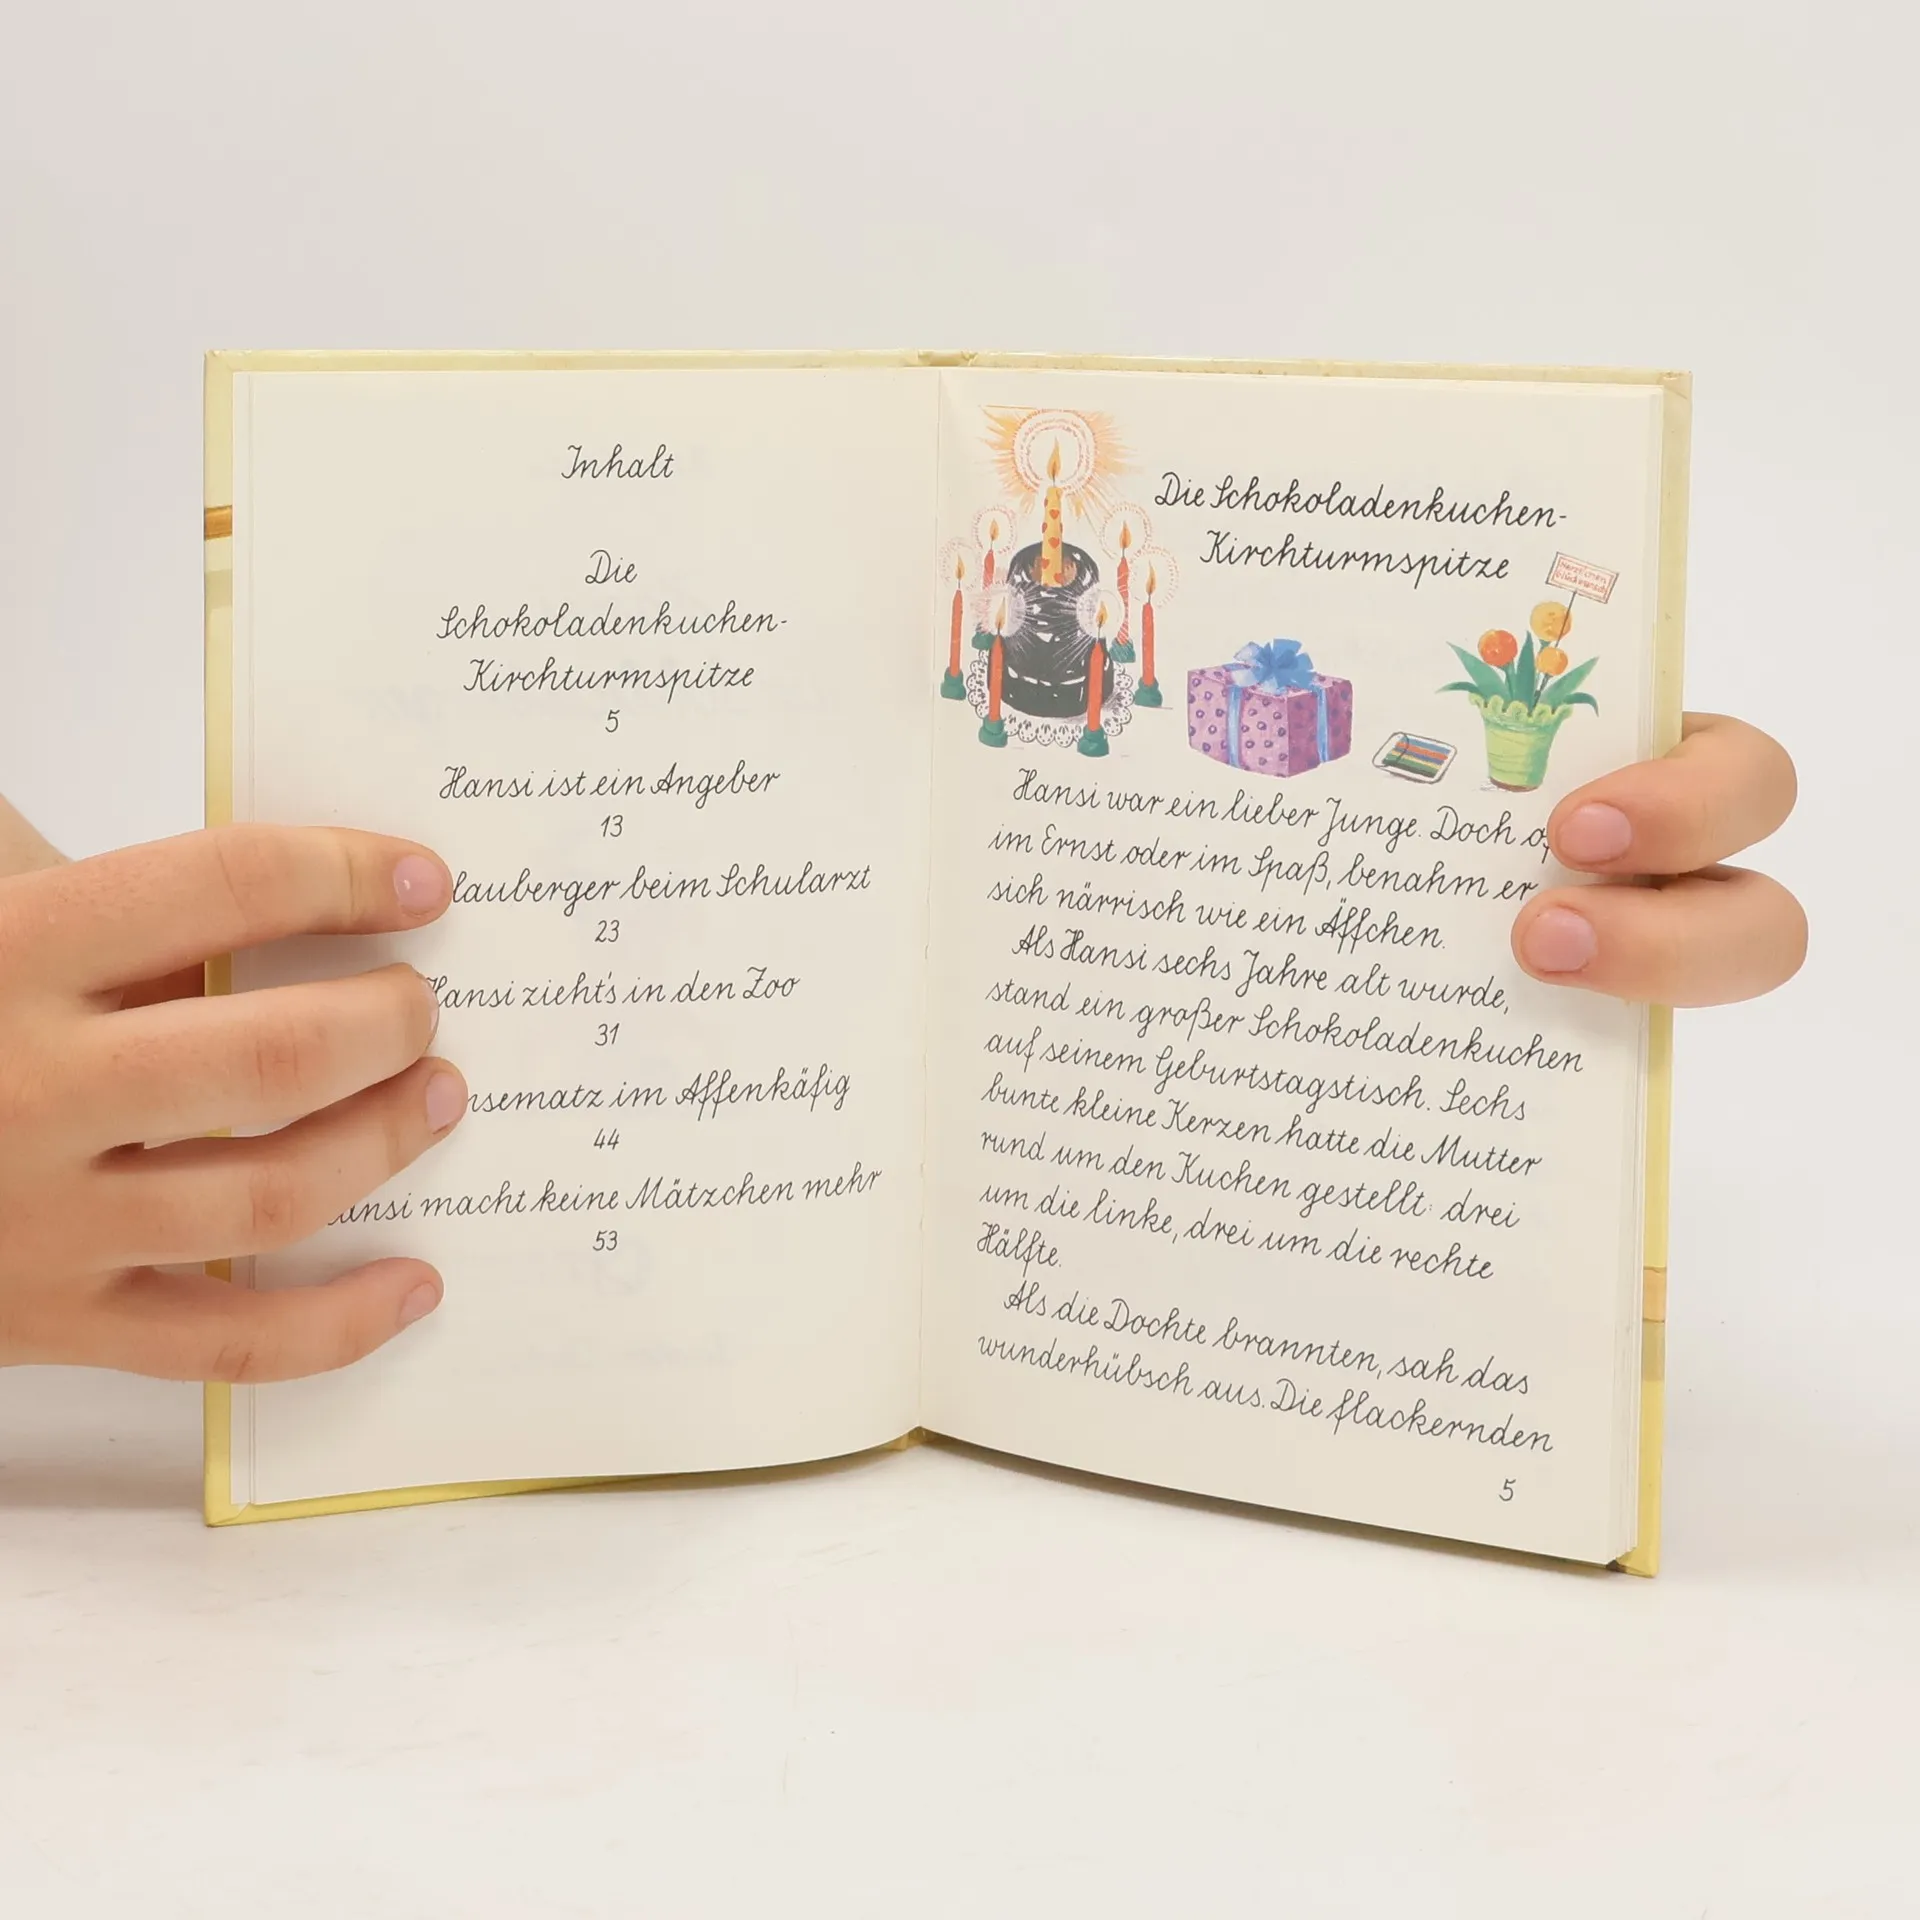 Inhalt
Die
Schokoladenkuchen-
Kirchturmspitze
5
Hansi ist ein Angeber
13
lauberger beim Schularzt
23
Hansi zieht's in den Zoo
31
nsematz im Affenkäfig
44
Hansi macht keine Mätzchen mehr
53
Die Schokoladenkuchen-
Kirchturmspitze
Herzlichen
Glückwunsch
Hansi war ein lieber Junge. Doch
im Ernst oder im Spaß, benahm er
sich närrisch wie ein Äffchen.
Als Hansi sechs Jahre alt wurde,
stand ein großer Schokoladenkuchen
auf seinem Geburtstagstisch. Sechs
bunte kleine Kerzen hatte die Mutter
rund um den Kuchen gestellt: drei
um die linke, drei um die rechte
Hälfte.
Als die Dochte brannten, sah das
wunderhübsch aus. Die flackernden
5